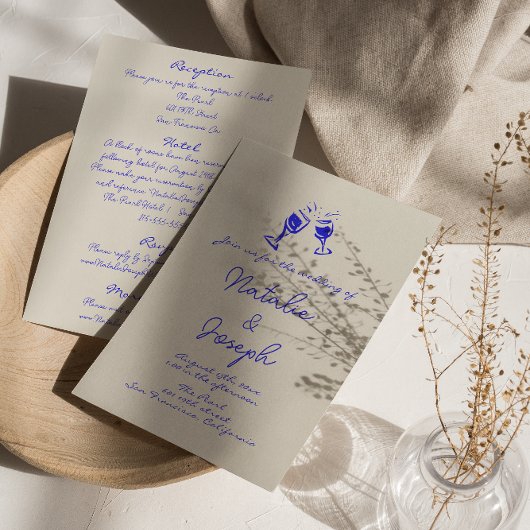 Reception
Please join us for the reception at 1 o'clock
The Pearl
601 19th Street
San Francisco Ca
Hotel
A block of rooms have been reserved
following hotel for August 24th
Please make your reservation by
and reference
The Pearl Hotel |
Please reply by
Join us for the wedding of
Natalie
&
Joseph
August 15th, 20xx
1:00 in the afternoon
The Pearl
601 19th street
San Francisco, California